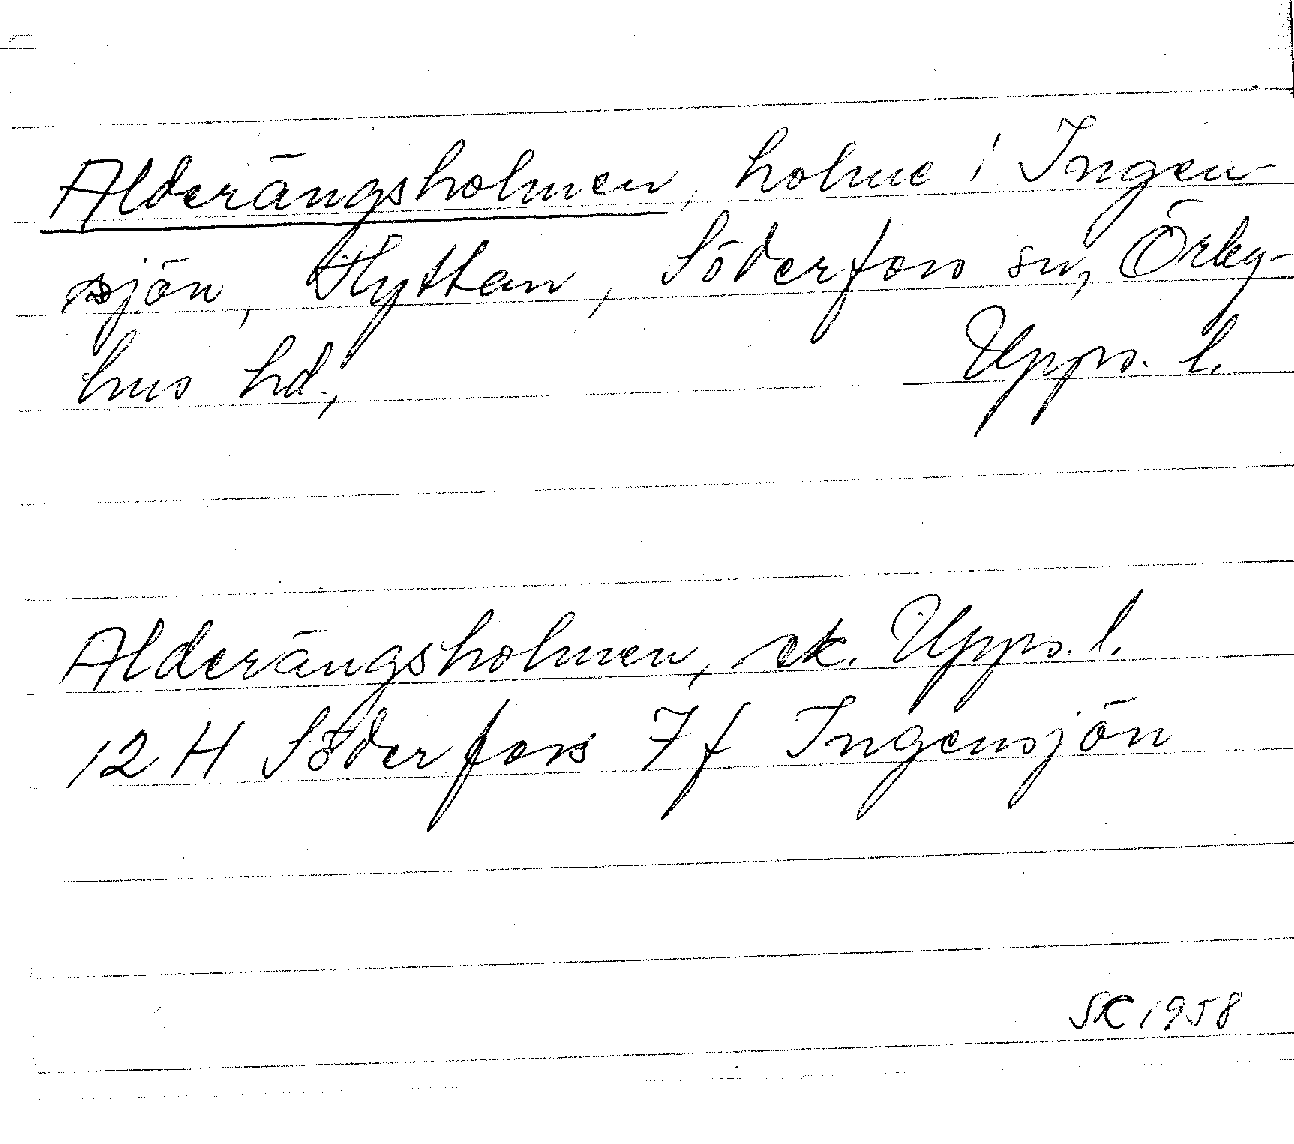 Alderängsholmen, holme i Ingen-
sjön, Hyttan, Söderfors sn, Örby-
hus hd, Upps. l.
Alderängsholmen, ek. Upps. l.
12 H Söderfors 7 f Ingensjön
SK 1958